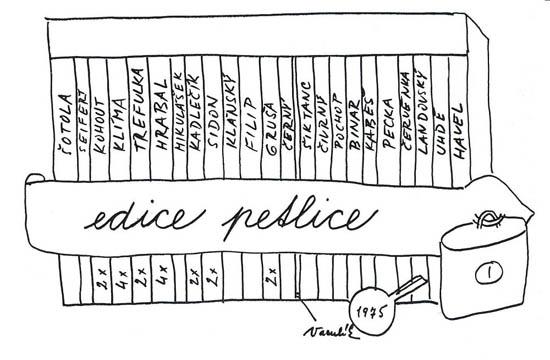 ŠOTOLA
SEIFERT
KOHOUT
KLÍMA
TREFULKA
HRABAL
MIKULÁŠEK
KADLEČÍK
SIDON
KLÁNSKÝ
FILIP
GRUŠA
ČERNÝ
ŠIKTANC
ČIVRNÝ
POCHOP
BINAR
KABEŠ
PECKA
ČERVENKA
LANDOVSKÝ
UHDE
HAVEL
edice petlice
2x
4x
2x
4x
2x
2x
2x
1
1975
Vaculík